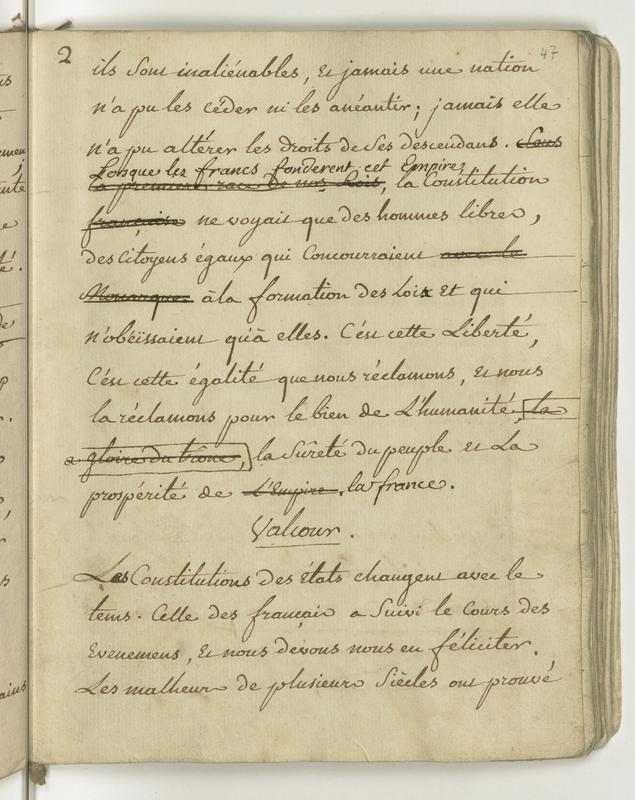 2
47
ils Sont inaliénables, Et jamais une nation
n'a pu les céder ni les anéantir; jamais elle
n'a pu altérer les droits de Ses descendans. Sous
Lorsque les francs fonderent cet Empire,
la premiere race de nos Rois, la Constitution
française ne voyait que des hommes libres,
des Citoyens égaux qui Concourraient avec le
Monarque à la formation des Loix Et qui
n'obéïssaient qu'à elles. C'est cette Liberté,
C'est cette égalité que nous réclamons, Et nous
la réclamons pour le bien de L'humanité, La
gloire du trône, la Sûreté du peuple et La
prospérité de L'Empire. la france.
Valcour.
Les Constitutions des états changent avec le
tems. Celle des français a Suivi le Cours des
Evenemens, Et nous devons nous en féliciter.
Les malheurs de plusieurs Siècles ont prouvé